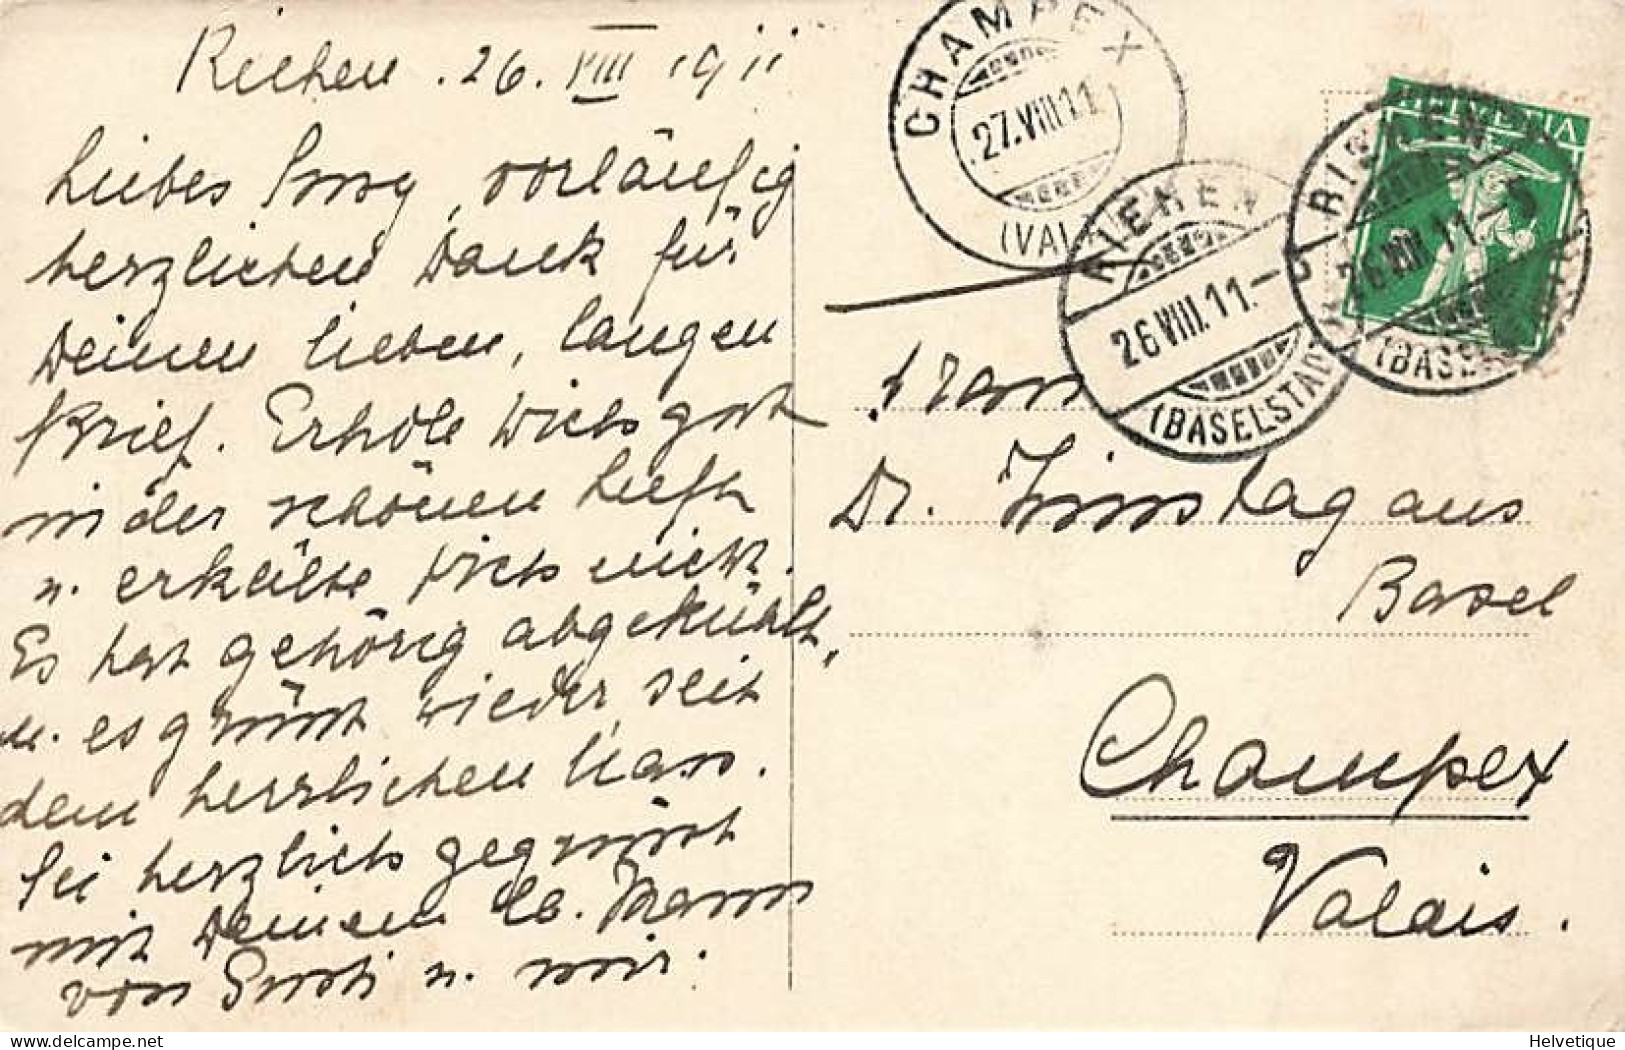 Riehen . 26. VIII 1911
Liebes , vorläufig
herzlichen Dank für
Deinen lieben, langen
Brief. Erhole Dich gut
in der schönen Luft
u. erkälte Dich nicht.
Es hat gehörig abgekühlt,
u. es grünt wieder, seit
dem herrlichen Nass.
Sei herzlich gegrüsst
mit Deinem lb. Mann
von u. mir.
CHAMPEX
27.VIII 11
(VA)
RIEHEN
26 VIII. 11.—
(BASELSTADT)
HELVETIA
RIEHEN
26 VIII 11.—
(BASEL
Dr. aus
Basel
Champex
Valais.
Helvetique